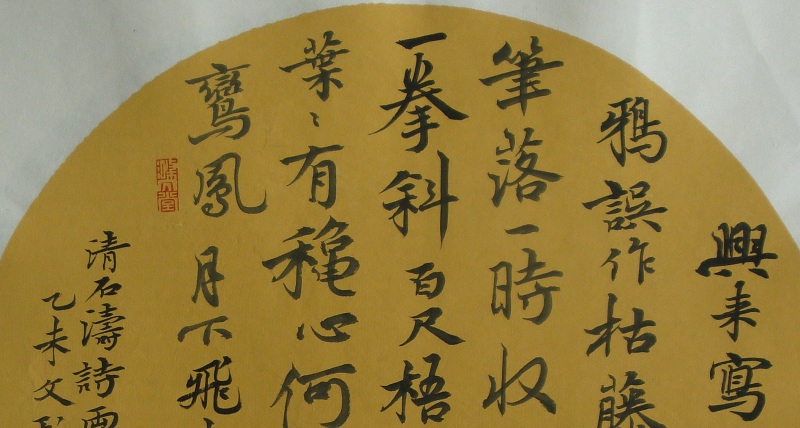 興来寫
鴉誤作枯藤
筆落一時收
一拳斜百尺梧
葉〻有穐心何
鸞鳳月下飛
清石濤詩兩
乙未文